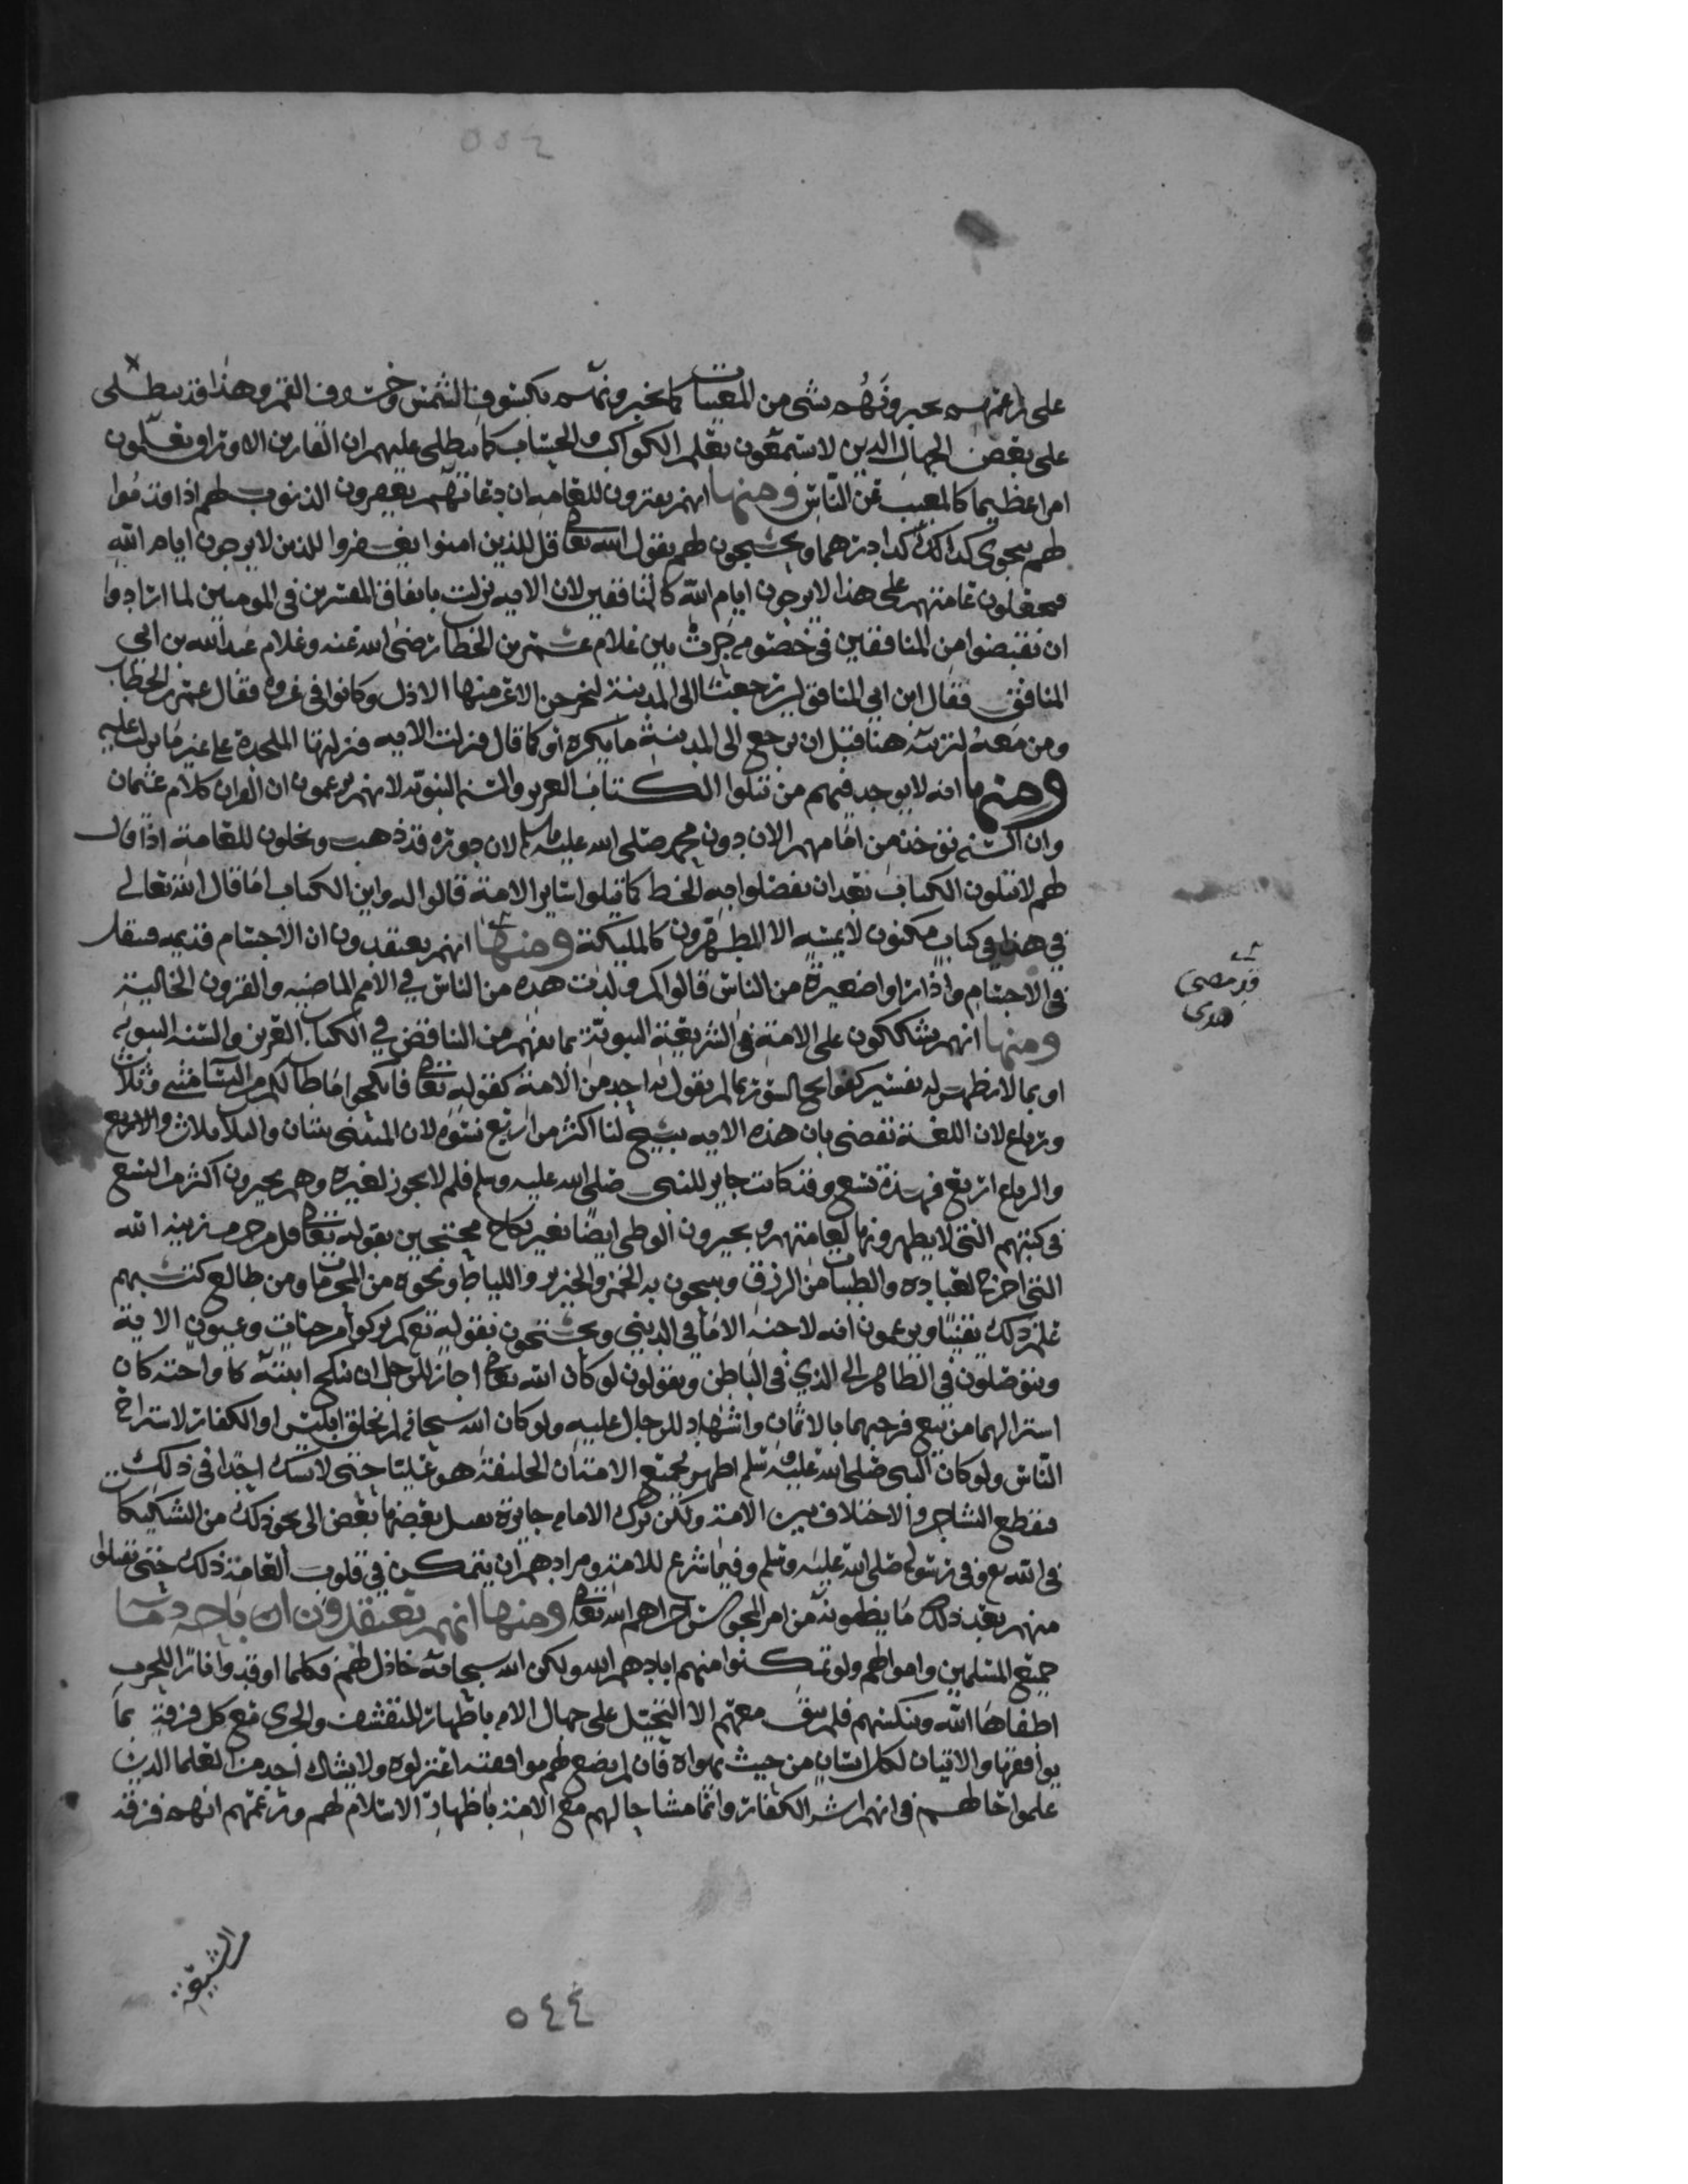 ٥٥٤
على زعمهم يخبرونهم بشى من المغيبات كما يخبرونهم بكسوف الشمس وخسوف القمر وهذا قد ينطلى
على بعض الجهال الدين لا يسمعون بعلم الكواكب والحساب كما ينطلى عليهم ان
امرا عظيما كالمغيب عن الناس ومنها انهم يفترون للعامه ان دعاتهم يغفرون الذنوب لهم اذا قدموا
لهم نجوى كدا كدا درهما ويحتجون لهم بقول الله تعالى قل للذين امنوا يغفروا للذين لا يرجون ايام الله
فيجعلون عامتهم على هذا لا يرجون ايام الله كالمنافقين لان الايه نزلت باتفاق المفسرين في المومنين لما ارادوا
ان يقتصوا من المنافقين في خصومه جرت بين غلام عمر بن الخطاب رضى الله عنه وغلام عبدالله بن ابي
المنافق فقال ابن ابي المنافق لين رجعنا الى المدينة ليخرجن الاعز منها الاذل وكانوا في غزوه فقال عمر بن الخطاب
ومن معه لنرينه هنا قبل ان نرجع الى المدينة ما يكره او كما قال فنزلت الايه فنزلتها الملحدة على غير ما نزلت عليه
ومنها انه لا يوجد فيهم من يتلوا الكتاب العزيز والسنه النبويه لانهم يزعمون ان القران كلام عثمان
وان السنه توخذ من امامهم الان دون محمد صلى الله عليه وسلم لان دوره قد ذهب ويخلون للعامة اذا قال
لهم لا تتلون الكتاب بعد ان يفصلوا فيه الخط كما يتلوا ساير الامة قالوا له واين الكتاب اما قال الله تعالى
في هذا في كتاب مكنون لا يمسه الا المطهرون كالمليكة ومنها انهم يعتقدون ان الاجسام قديمه تنقل
في الاجسام واذا راوا صغيرة من الناس قالوا كم ولدت هده من الناس في الامم الماضيه والقرون الخالية
ومنها انهم يشككون على الامة في الشريعة النبوية بما يفهم من التناقض في الكتاب العزيز والسنه النبويه
او بما لا يظهر له تفسير كفواتح السور بما لم يقول به احد من الامة كقوله تعالى فانكحوا ما طاب لكم من النسا مثنى وثلاث
ورباع لان اللغة تقضى بان هذه الايه تبيح لنا اكثر من اربع نسوه لان المثنى ثنتان والثلاث ثلاث والاربع
والرباع اربع فهده تسع وقد كانت جايز للنبي صلى الله عليه وسلم فلم لا يجوز لغيره وهم يجيزون اكثر من التسع
في كتبهم التي لا يظهرونها لعامتهم ويجيزون الوطى ايضا بغير نكاح محتجين بقوله تعالى قل من حرم زينه الله
التي اخرج لعباده والطيبات من الرزق ويبيحون به الخمر والخنزير واللياط ونحوه من المحرمات ومن طالع كتبهم
علم ذلك يقينا ويزعمون انه لا جنه الا ما في الدنيا ويحتجون بقوله تعالى كم تركوا من جنات وعيون الاية
ويتوصلون في الظاهر الى الذي في الباطن ويقولون لو كان الله تعالى اجاز للرجل ان ينكح ابنته او اخته كان
استر لهما من بيع فرجهما بالاثمان واشهاد للرجال عليه ولو كان الله سبحانه لم يخلق ابليس او الكفار لاستراح
الناس ولو كان النبي صلى الله عليه وسلم اظهر لجميع الامة ان الخليفة هو عليا حتى لا يشك احد في ذلك
فيقطع التشاجر والاختلاف بين الامة ولكن ترك الامام جايزة يقتل بعضها بعض الى نحو ذلك من التشكيكات
في الله تعالى وفي رسوله صلى الله عليه وسلم وفيما شرع للامة ومرادهم ان يتمكن في قلوب العامة ذلك حتى يقبلوا
منهم بعد ذلك ما يظهرونه من امر المجوس اخزاهم الله تعالى ومنها انهم يعتقدون اباحة دماء
جميع المسلمين واموالهم ولو تمكنوا منهم ابادهم الله ولكن الله سبحانه خاذل لهم فكلما اوقدوا نارا للحرب
اطفاها الله وينكبهم فلم يبق معهم الا التحيل على جهال الامه باظهار التقشف والجرى مع كل فرقة بما
يوافقها والاتيان لكل انسان من حيث يهواه فان لم يصح لهم موافقته اعتزلوه ولا يشاك احد من العلما الدين
علموا حالهم في انهم اشر الكفار وانما مشاحا لهم مع الامة باظهار الاسلام لهم وزعمهم انهم فرقه
من الشيعة
٥٤٤